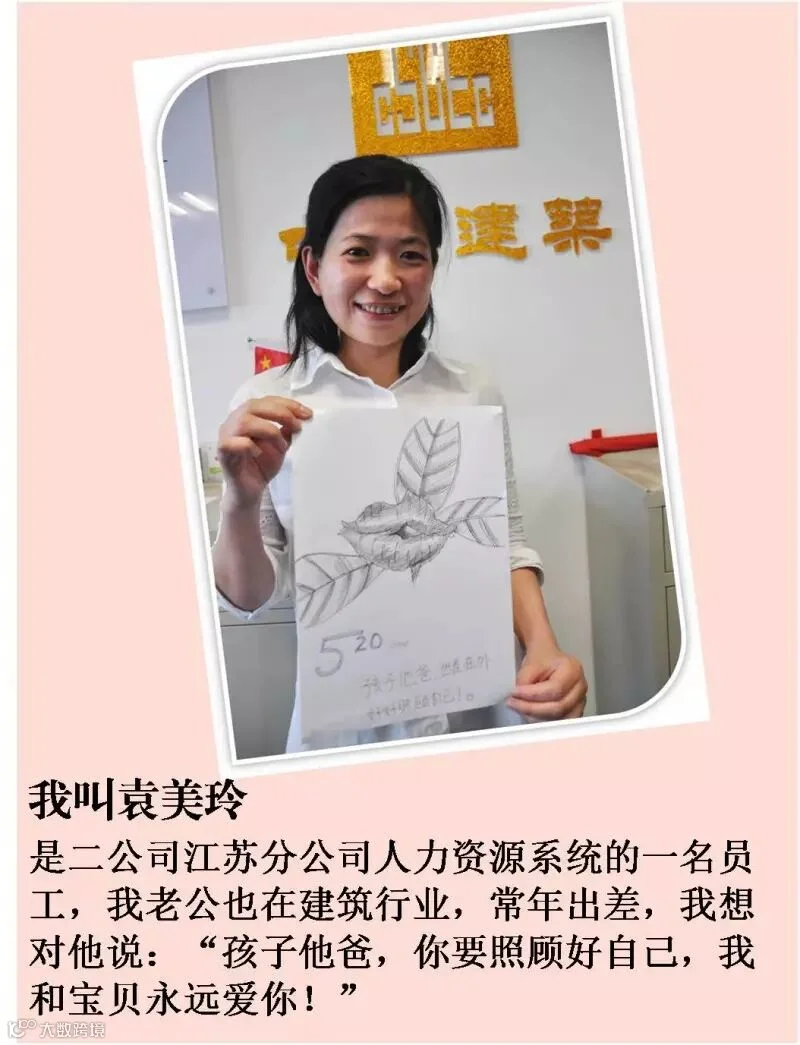 CSCEC
建築
520
孩子他爸
好好照顾自己!。
我叫袁美玲
是二公司江苏分公司人力资源系统的一名员
工，我老公也在建筑行业，常年出差，我想
对他说：“孩子他爸，你要照顾好自己，我
和宝贝永远爱你！”
大数跨境